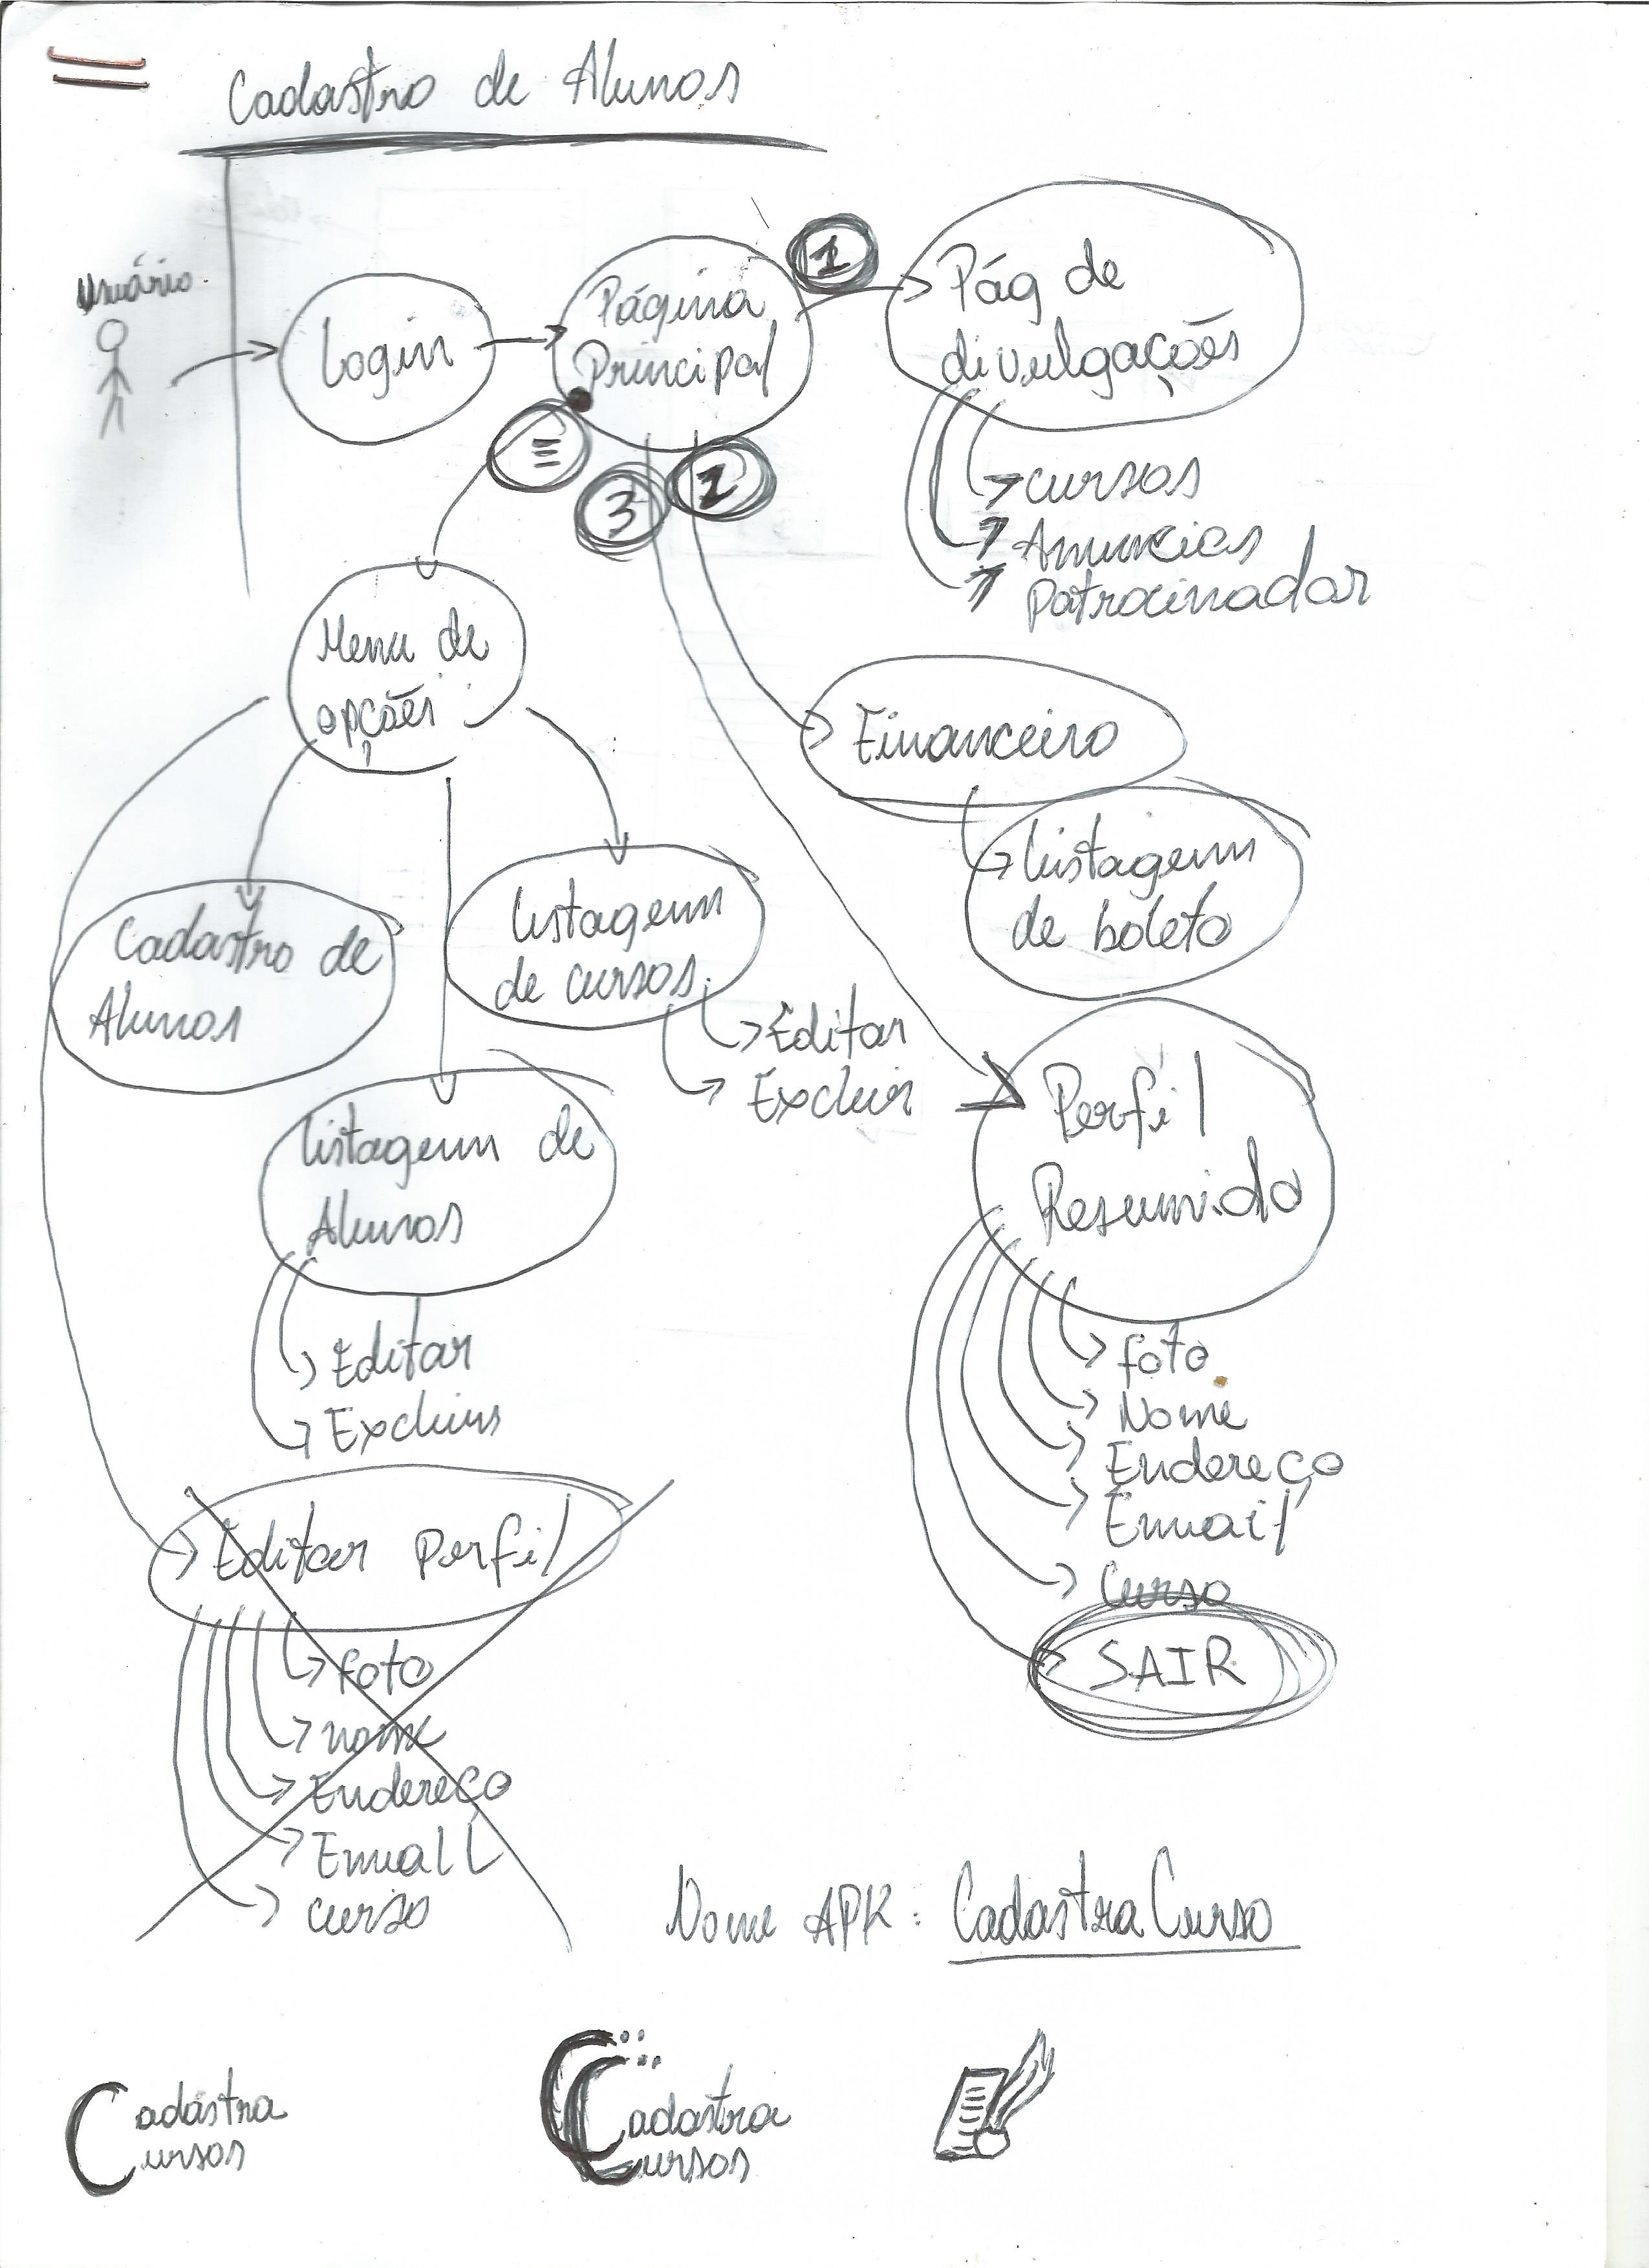 Cadastro de Alunos
Usuário
Login
Página
Principal
1
Pág de
divulgações
cursos
Anuncios
Patrocinador
3
2
Menu de
opções
Financeiro
Listagem
de boleto
Cadastro de
Alunos
Listagem
de cursos
Editar
Excluir
Listagem de
Alunos
Editar
Excluir
Perfil
Resumido
foto
Nome
Endereço
Email
Curso
SAIR
Editar Perfil
foto
nome
Endereço
Email
curso
Nome APK: CadastraCurso
Cadastra
Cursos
Cadastra
Cursos